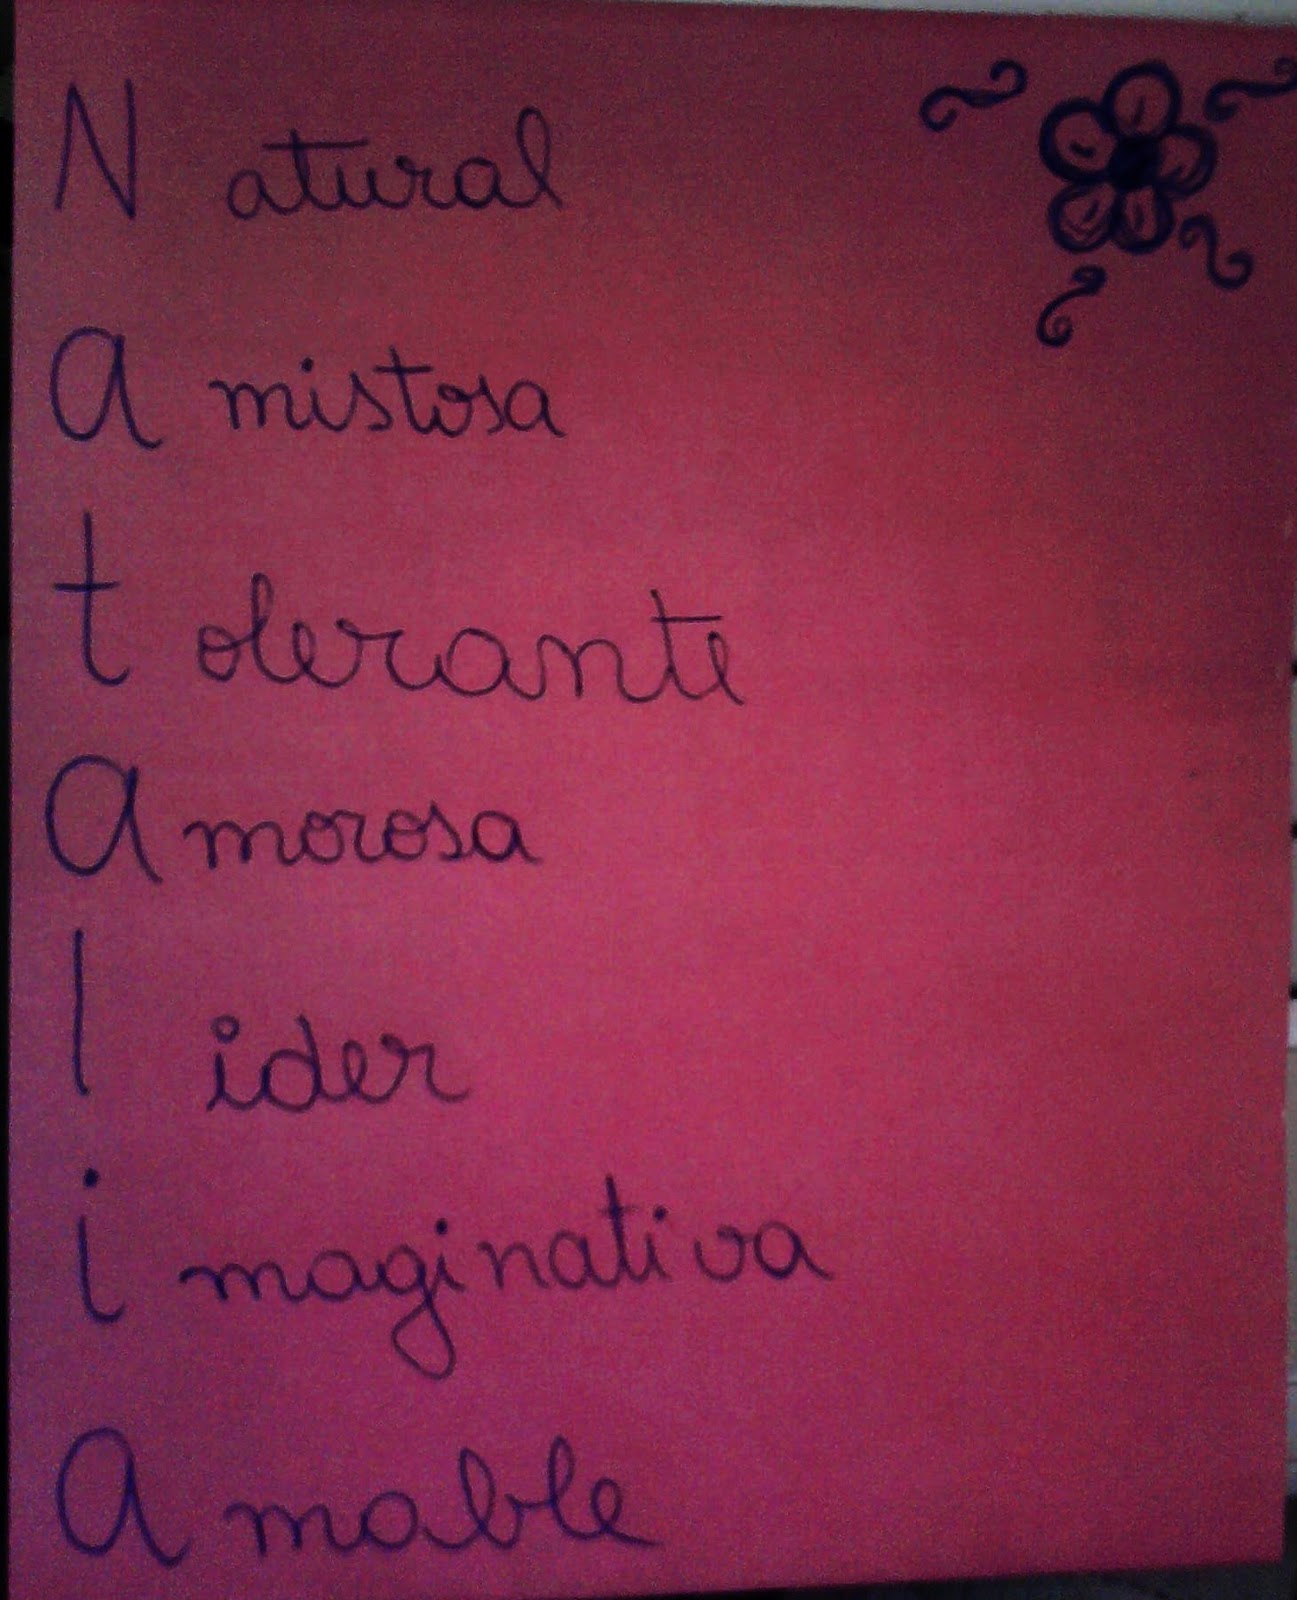 N atural
A mistosa
t olerante
A morosa
l ider
i maginativa
A mable